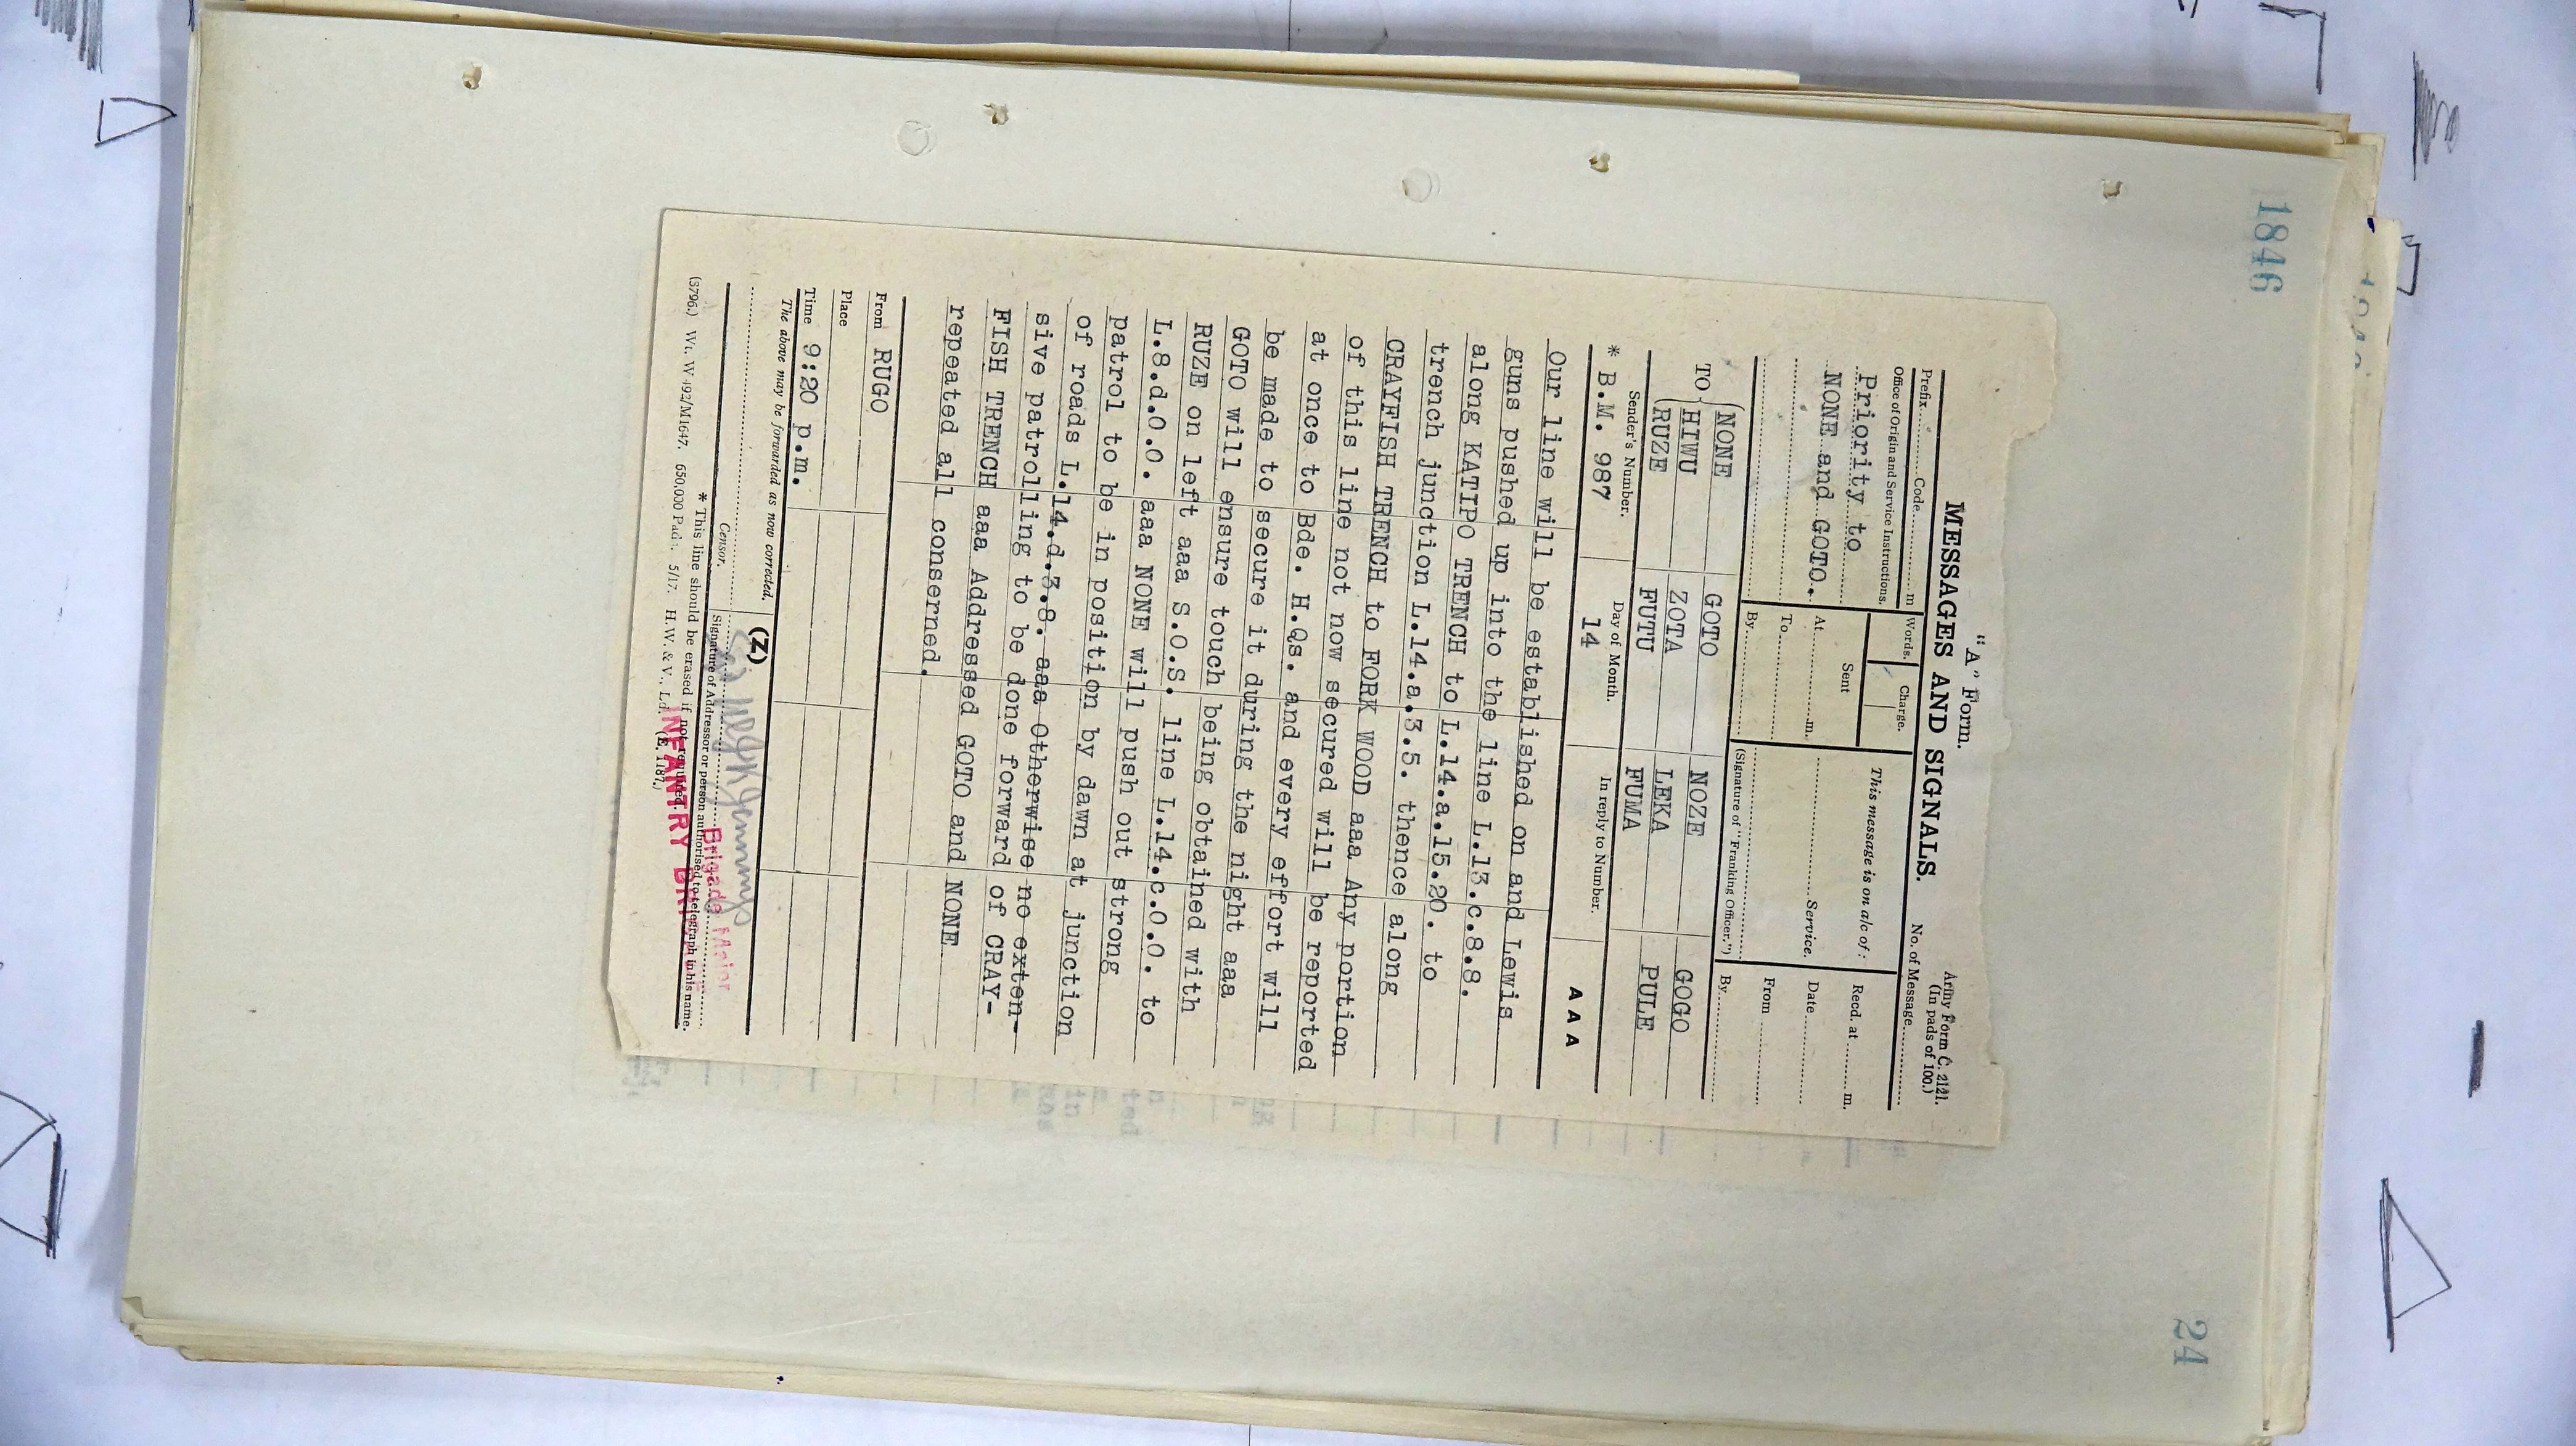 1846
24
"A" Form.
Army Form C. 2121.
MESSAGES AND SIGNALS.
(In pads of 100.)
No. of Message..........
Prefix..........Code..........m
Words.
Charge.
This message is on a/c of:
Recd. at..........m.
Office of Origin and Service Instructions.
Priority to
Sent
Date..........
NONE and GOTO.
At..........m.
..........Service.
From..........
To..........
By..........
(Signature of "Franking Officer.")
By..........
TO { NONE GOTO NOZE GOGO
HIWU ZOTA LEKA PULE
RUZE FUTU FUMA
Sender's Number. Day of Month. In reply to Number.
* B.M. 987 14 AAA
Our line will be established on and Lewis
guns pushed up into the line L.13.c.8.8.
along KATIPO TRENCH to L.14.a.15.20. to
trench junction L.14.a.3.5. thence along
CRAYFISH TRENCH to FORK WOOD aaa Any portion
of this line not now secured will be reported
at once to Bde. H.Qs. and every effort will
be made to secure it during the night aaa
GOTO will ensure touch being obtained with
RUZE on left aaa S.O.S. line L.14.c.0.0. to
L.8.d.0.0. aaa NONE will push out strong
patrol to be in position by dawn at junction
of roads L.14.d.3.8. aaa Otherwise no exten-
sive patrolling to be done forward of CRAY-
FISH TRENCH aaa Addressed GOTO and NONE
repeated all conserned.
From RUGO
Place
Time 9:20 p.m.
The above may be forwarded as now corrected.
(Z)
Censor.
Signature of Addressor or person authorised to telegraph in his name.
Brigade Major
* This line should be erased if not required.
INFANTRY
(3796.) Wt. W 492/M1647. 650,000 Pads. 5/17. H.W. & V., Ld. (E. 1187.)